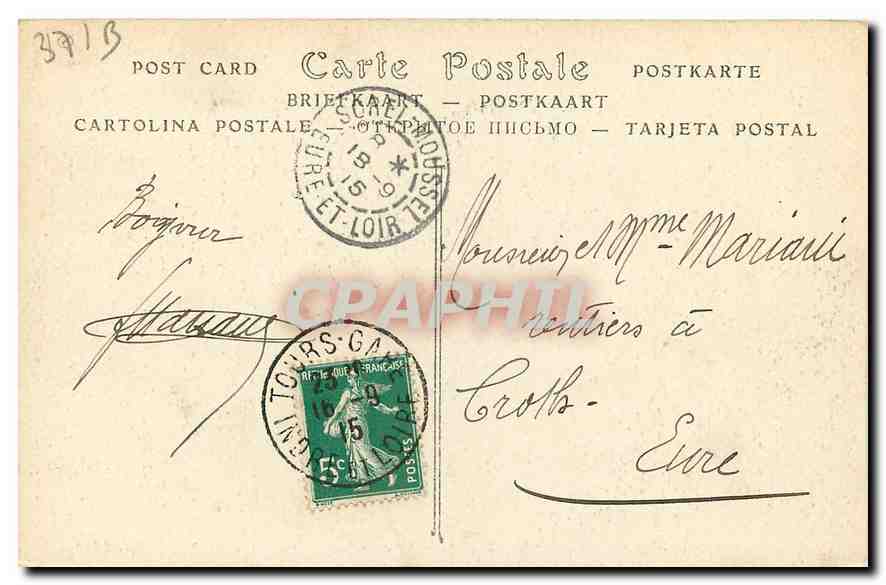 37/B
POST CARD Carte Postale POSTKARTE
BRIEFKAART — POSTKAART
CARTOLINA POSTALE — ОТКРЫТОЕ ПИСЬМО — TARJETA POSTAL
SOREL-MOUSSEL
8
18 -9
15
EURE-ET-LOIR
Bonjour
Mariani
Monsieur et Mme Mariani
rentiers à
Croth-
Eure
CPAPHIL
TOURS-GARE
16 -9
15
INDRE ET LOIRE
REPUBLIQUE FRANÇAISE
5c
POSTES